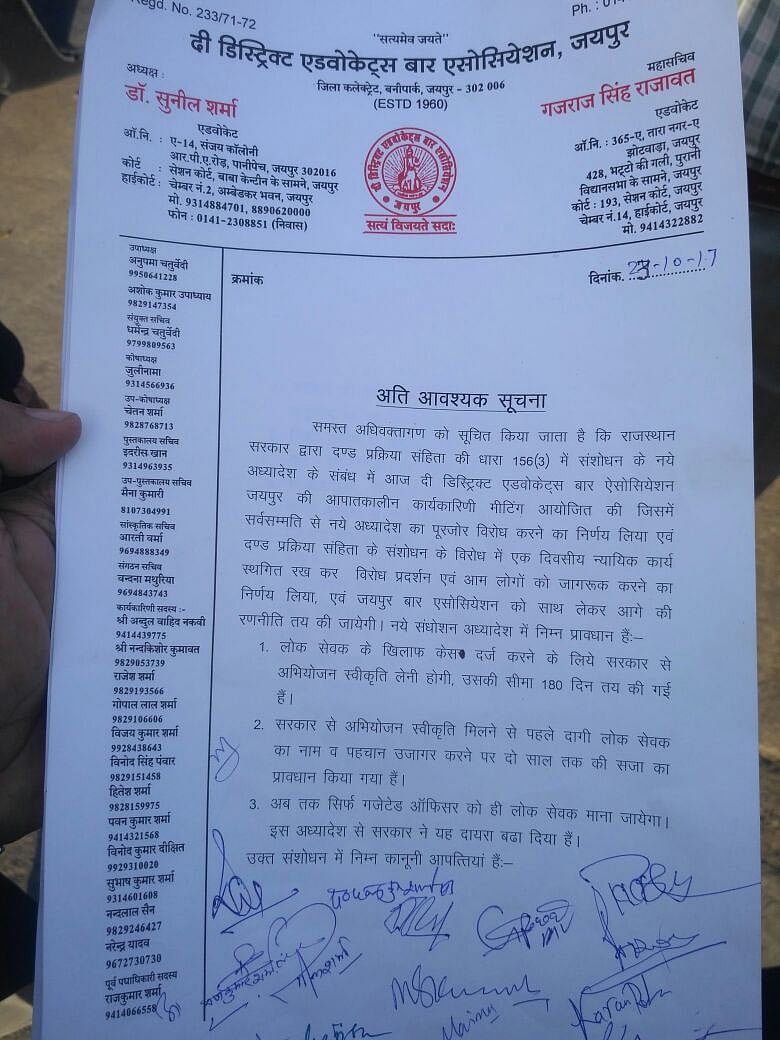 Regd. No. 233/71-72
Ph. :
"सत्यमेव जयते"
दी डिस्ट्रिक्ट एडवोकेट्स बार एसोसियेशन, जयपुर
जिला कलेक्ट्रेट, बनीपार्क, जयपुर - 302 006
(ESTD 1960)
अध्यक्ष :
डॉ. सुनील शर्मा
एडवोकेट
ऑ.नि. : ए-14, संजय कॉलोनी
आर.पी.ए.रोड़, पानीपेच, जयपुर 302016
कोर्ट : सेशन कोर्ट, बाबा केन्टीन के सामने, जयपुर
हाईकोर्ट : चेम्बर नं.2, अम्बेडकर भवन, जयपुर
मो. 9314884701, 8890620000
फोन : 0141-2308851 (निवास)
दी डिस्ट्रिक्ट एडवोकेट्स बार एसोसियेशन
जयपुर
सत्यं विजयते सदाः
महासचिव
गजराज सिंह राजावत
एडवोकेट
ऑ.नि. : 365-ए, तारा नगर-ए
झोटवाड़ा, जयपुर
428, भट्टो की गली, पुरानी
विद्यानसभा के सामने, जयपुर
कोर्ट : 193, सेशन कोर्ट, जयपुर
चेम्बर नं.14, हाईकोर्ट, जयपुर
मो. 9414322882
उपाध्यक्ष
अनुपमा चतुर्वेदी
9950641228
अशोक कुमार उपाध्याय
9829147354
संयुक्त सचिव
धर्मेन्द्र चतुर्वेदी
9799809563
कोषाध्यक्ष
जुलीनामा
9314566936
उप-कोषाध्यक्ष
चेतन शर्मा
9828768713
पुस्तकालय सचिव
इदरीस खान
9314963935
उप-पुस्तकालय सचिव
मैना कुमारी
8107304991
सांस्कृतिक सचिव
आरती वर्मा
9694888349
संगठन सचिव
वन्दना मथुरिया
9694843743
कार्यकारिणी सदस्य :-
श्री अब्दुल वाहिद नकवी
9414439775
श्री नन्दकिशोर कुमावत
9829053739
राजेश शर्मा
9829193566
गोपाल लाल शर्मा
9829106606
विजय कुमार शर्मा
9928438643
विनोद सिंह पंवार
9829151458
हितेश शर्मा
9828159975
पवन कुमार शर्मा
9414321568
विनोद कुमार दीक्षित
9929310020
सुभाष कुमार शर्मा
9314601608
नन्दलाल सैन
9829246427
नरेन्द्र यादव
9672730730
पूर्व पधाधिकारी सदस्य
राजकुमार शर्मा
9414066558
क्रमांक
दिनांक. 23-10-17
अति आवश्यक सूचना
समस्त अधिवक्तागण को सूचित किया जाता है कि राजस्थान
सरकार द्वारा दण्ड प्रक्रिया संहिता की धारा 156(3) में संशोधन के नये
अध्यादेश के संबंध में आज दी डिस्ट्रिक्ट एडवोकेट्स बार ऐसोसियेशन
जयपुर की आपातकालीन कार्यकारिणी मीटिंग आयोजित की जिसमें
सर्वसम्मति से नये अध्यादेश का पूरजोर विरोध करने का निर्णय लिया एवं
दण्ड प्रक्रिया संहिता के संशोधन के विरोध में एक दिवसीय न्यायिक कार्य
स्थगित रख कर विरोध प्रदर्शन एवं आम लोगों को जागरूक करने का
निर्णय लिया, एवं जयपुर बार एसोसियेशन को साथ लेकर आगे की
रणनीति तय की जायेगी। नये संधोशन अध्यादेश में निम्न प्रावधान हैः–
1. लोक सेवक के खिलाफ केस दर्ज करने के लिये सरकार से
अभियोजन स्वीकृति लेनी होगी, उसकी सीमा 180 दिन तय की गई
हैं।
2. सरकार से अभियोजन स्वीकृति मिलने से पहले दागी लोक सेवक
का नाम व पहचान उजागर करने पर दो साल तक की सजा का
प्रावधान किया गया हैं।
3. अब तक सिर्फ गजेटेड ऑफिसर को ही लोक सेवक माना जायेगा।
इस अध्यादेश से सरकार ने यह दायरा बढा दिया हैं।
उक्त संशोधन में निम्न कानूनी आपत्तियां हैः–